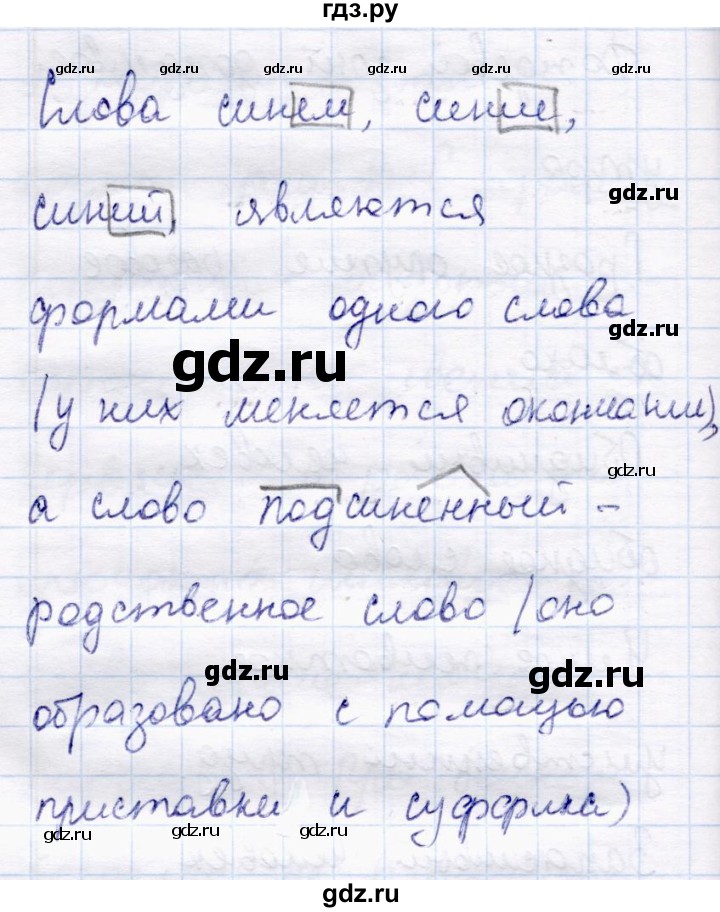 гдз.ру
gdz.ru gdz.ru gdz.ru gdz.ru gdz.ru
Слова синем, синие,
gdz.ru
синий, являются
формами одного слова
gdz.ru
gdz.ru
(у них меняется окончания),
gdz.ru
а слово подсиненный –
родственное слово (оно
gdz.ru
gdz.ru
образовано с помощью
приставки и суффикса)
gdz.ru gdz.ru gdz.ru gdz.ru
gdz.ru